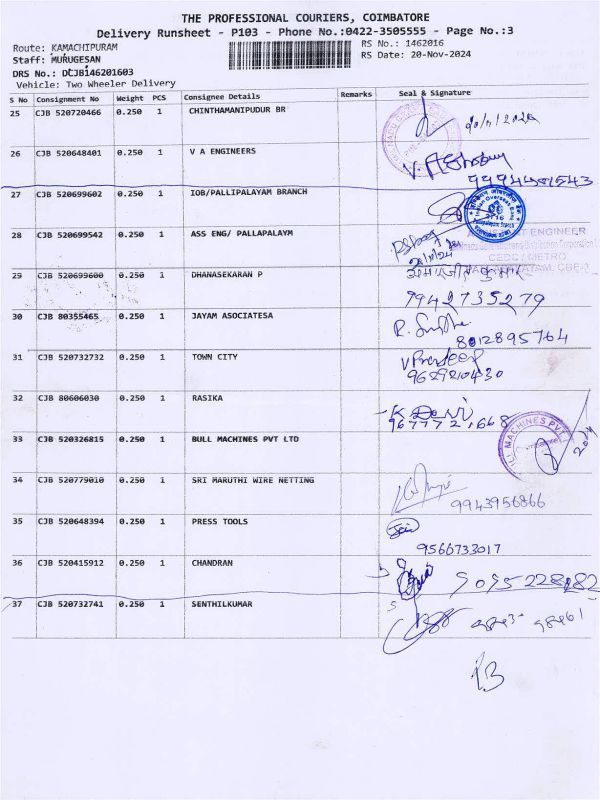 THE PROFESSIONAL COURIERS, COIMBATORE
Delivery Runsheet - P103 - Phone No.:0422-3505555 - Page No.:3
Route: KAMACHIPURAM RS No.: 1462016
Staff: MURUGESAN RS Date: 20-Nov-2024
DRS No.: DCJB146201603
Vehicle: Two Wheeler Delivery
S No Consignment No Weight PCS Consignee Details Remarks Seal & Signature
25 CJB 520720466 0.250 1 CHINTHAMANIPUDUR BR
26 CJB 520648401 0.250 1 V A ENGINEERS
27 CJB 520699602 0.250 1 IOB/PALLIPALAYAM BRANCH
28 CJB 520699542 0.250 1 ASS ENG/ PALLAPALAYM
ENGINEER
CEDC / METRO
29 CJB 520699600 0.250 1 DHANASEKARAN P
9942735279
30 CJB 80355465 0.250 1 JAYAM ASOCIATESA
8012895764
31 CJB 520732732 0.250 1 TOWN CITY
32 CJB 80606030 0.250 1 RASIKA
33 CJB 520326815 0.250 1 BULL MACHINES PVT LTD
MACHINES PVT
34 CJB 520779010 0.250 1 SRI MARUTHI WIRE NETTING
9943956866
35 CJB 520648394 0.250 1 PRESS TOOLS
9566733017
36 CJB 520415912 0.250 1 CHANDRAN
37 CJB 520732741 0.250 1 SENTHILKUMAR